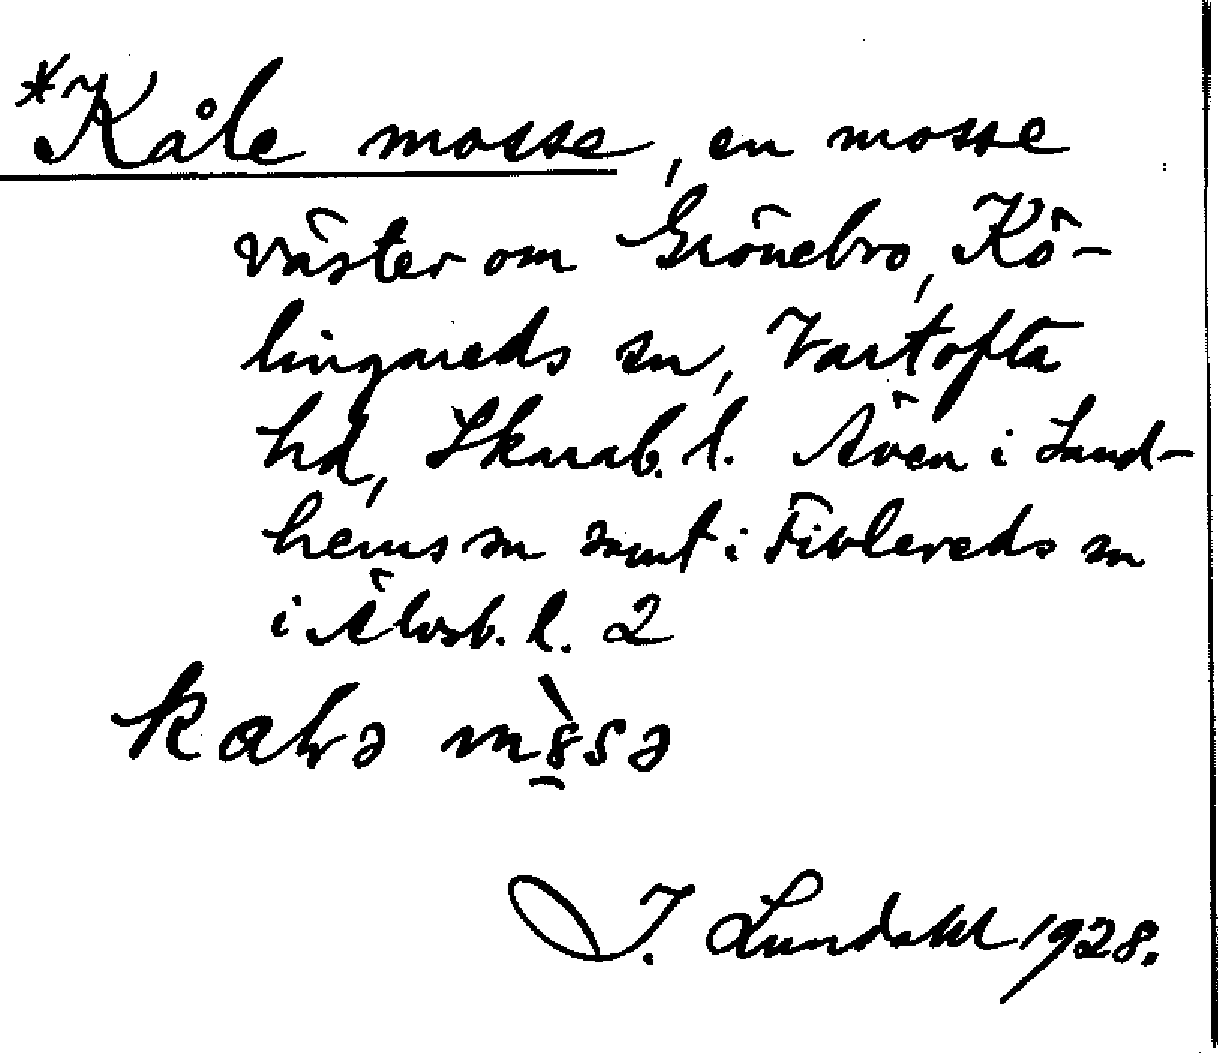 *Kåle mosse, en mosse
väster om Grönebro, Kö-
lingareds sn, Vartofta
hd, Skarab. l. Även i Sand-
hems sn samt i Fivlereds sn
i Älvsb. l. 2
I. Lundahl 1928.